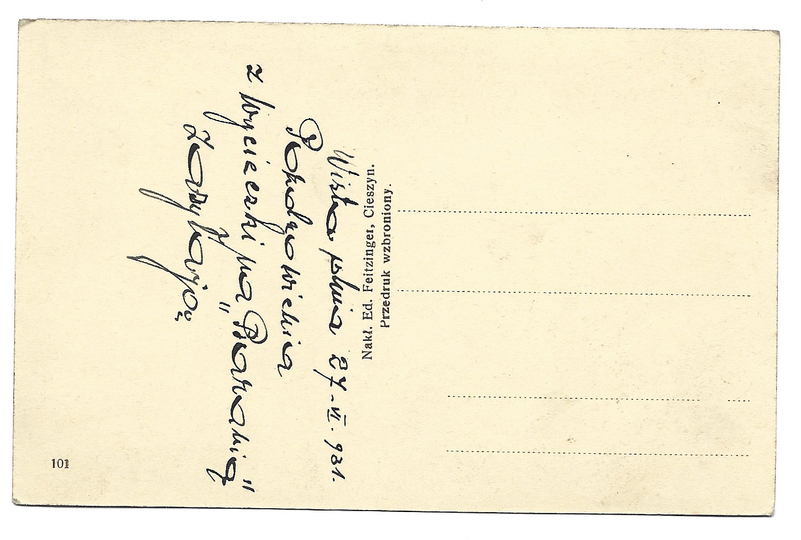 Wisła dnia 27-VI. 931.
Pozdrowienia
z wycieczki na "Baranią"
zasyłają
Nakł. Ed. Feitzinger, Cieszyn.
Przedruk wzbroniony.
101